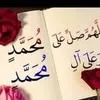 اللّٰهُمَّ صَلِّ عَلَى مُحَمَّدٍ
وَ عَلَى آلِ مُحَمَّد